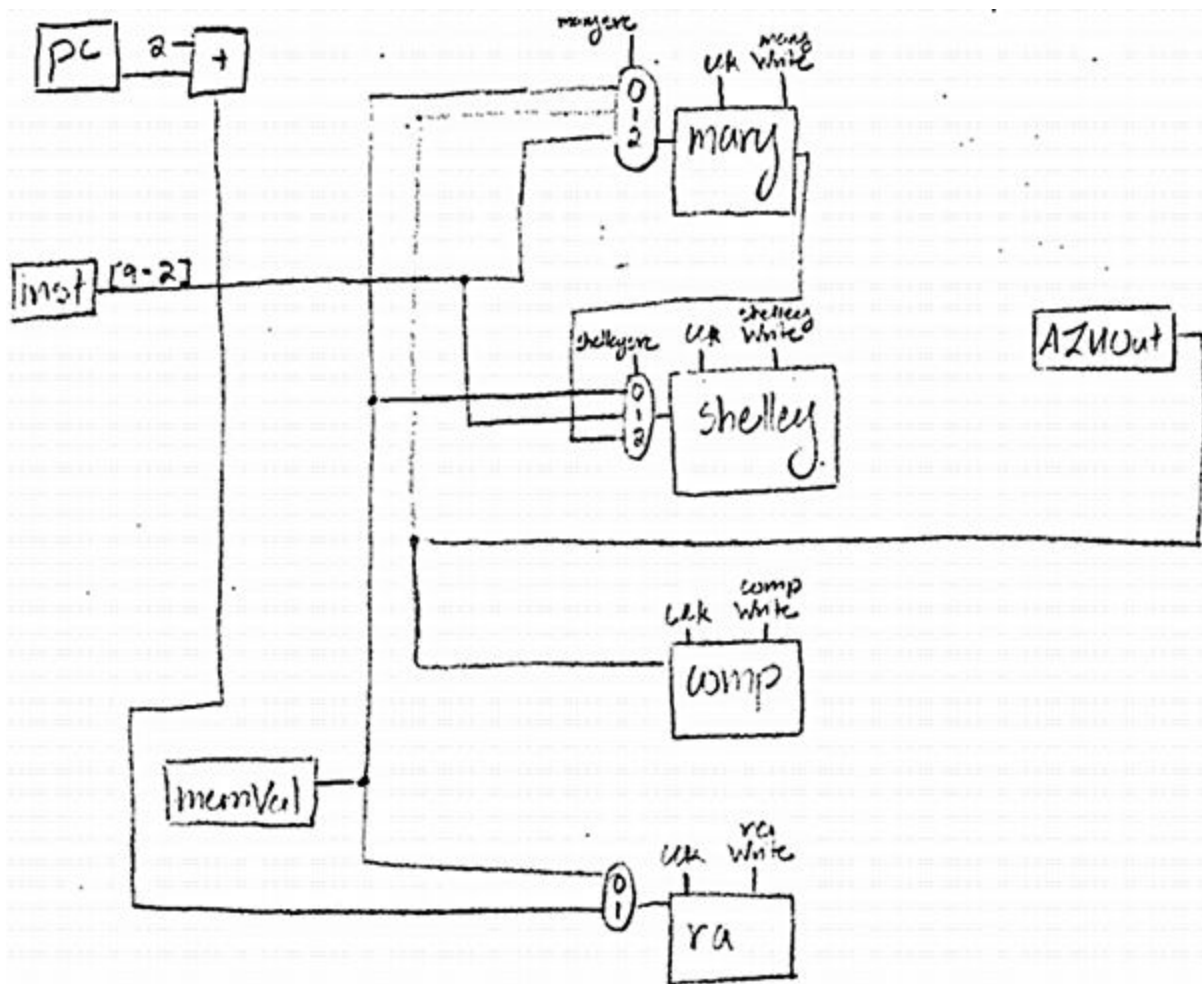 PC
2
+
marysrc
0
1
2
clk
mary
write
mary
inst
[9-2]
shelleysrc
0
1
2
clk
shelley
write
shelley
ALUOut
clk
comp
write
comp
memVal
0
1
clk
ra
write
ra